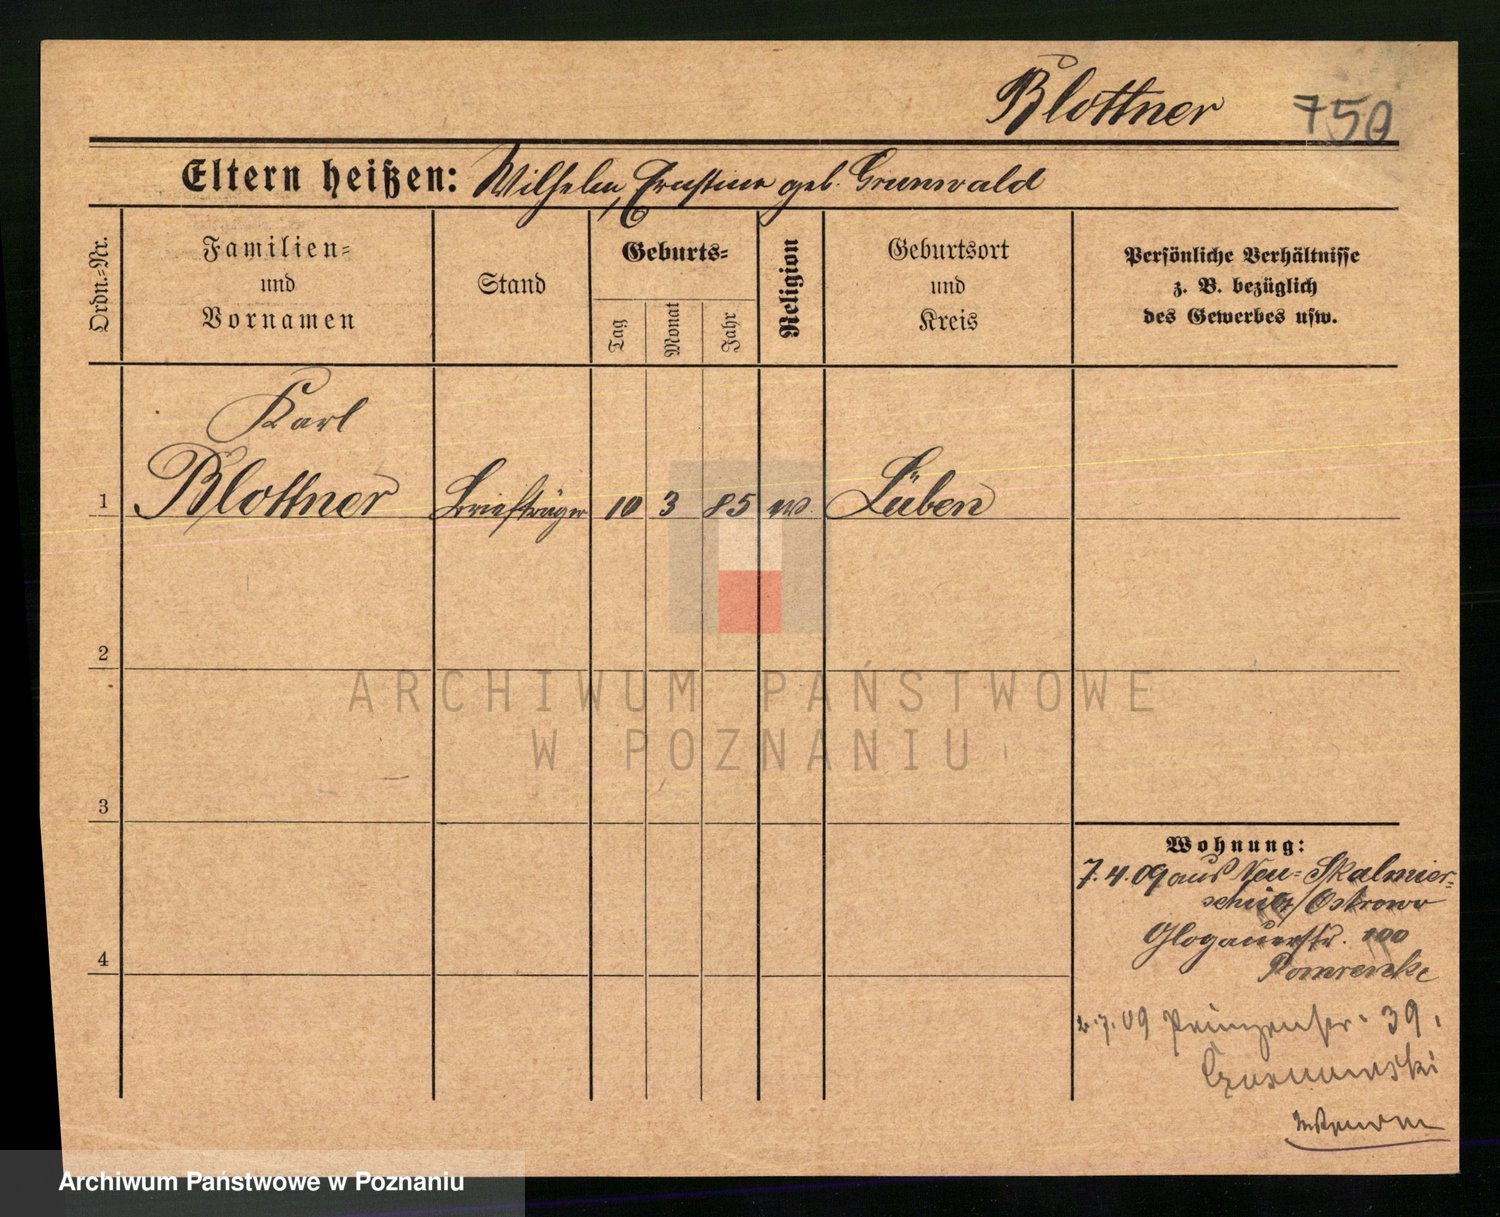 Blottner 750
Eltern heißen: Wilhelm, Ernstine geb. Grunwald
Ordn.-Nr.
Familien-
und
Vornamen
Stand
Geburts-
Tag
Monat
Jahr
Religion
Geburtsort
und
Kreis
Persönliche Verhältnisse
z. B. bezüglich
des Gewerbes usw.
Karl
1 Blottner Briefträger 10 3 85 Lüben
2
ARCHIWUM PAŃSTWOWE
W POZNANIU
3
Wohnung:
7.4.09 aus Neu-Skalmier-
schütz/Ostrowo
Glogauerstr. 100
Pomrenke
4
2.7.09 Prinzenstr. 39.
Archiwum Państwowe w Poznaniu